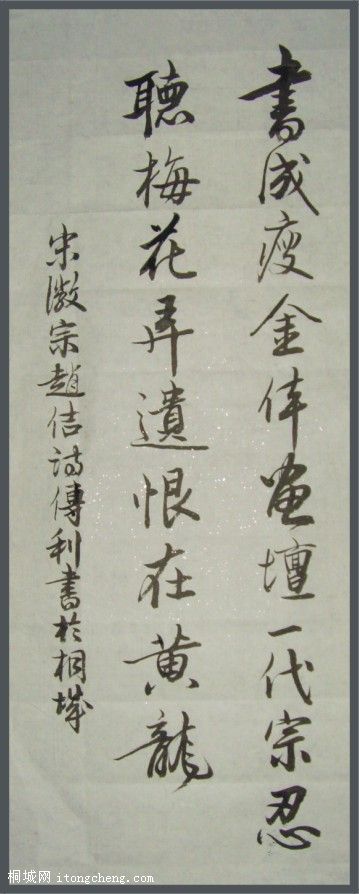 書成瘦金体畫壇一代宗忍
聽梅花弄遺恨在黄龍
宋徽宗趙佶詩傳利書於桐城
桐城网 itongcheng.com